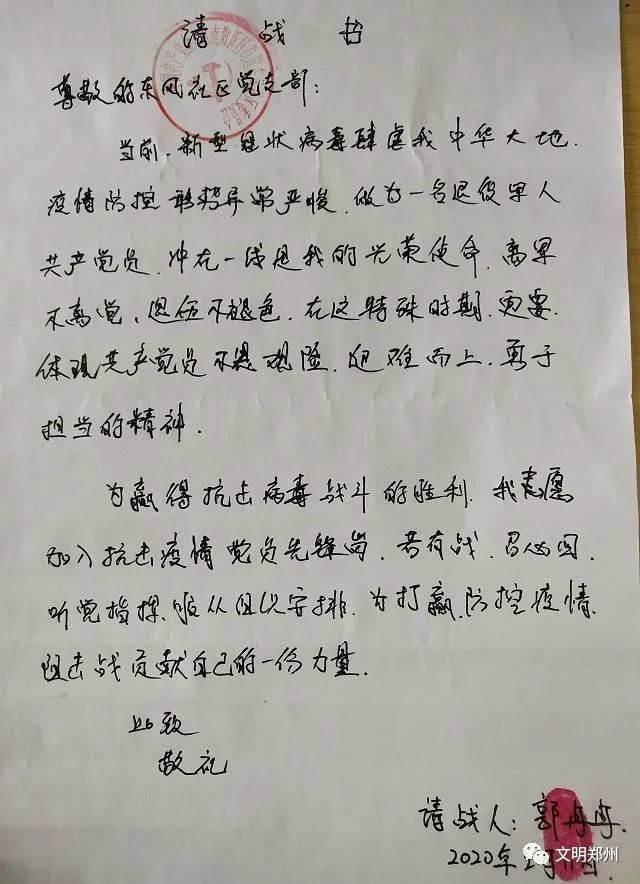 请战书
尊敬的东风社区党支部:
当前,新型冠状病毒肆虐我中华大地,
疫情防控形势异常严峻,做为一名退役军人
共产党员,冲在一线是我的光荣使命,离军
不离党、退伍不褪色,在这特殊时期,更要
体现共产党员不畏艰险,迎难而上,勇于
担当的精神.
为赢得抗击病毒战斗的胜利,我志愿
加入抗击疫情党员先锋岗,若有战,召必回,
听党指挥、服从组织安排,为打赢防控疫情
阻击战贡献自己的一份力量.
此致
敬礼
请战人:郭丹丹.
2020年
文明郑州